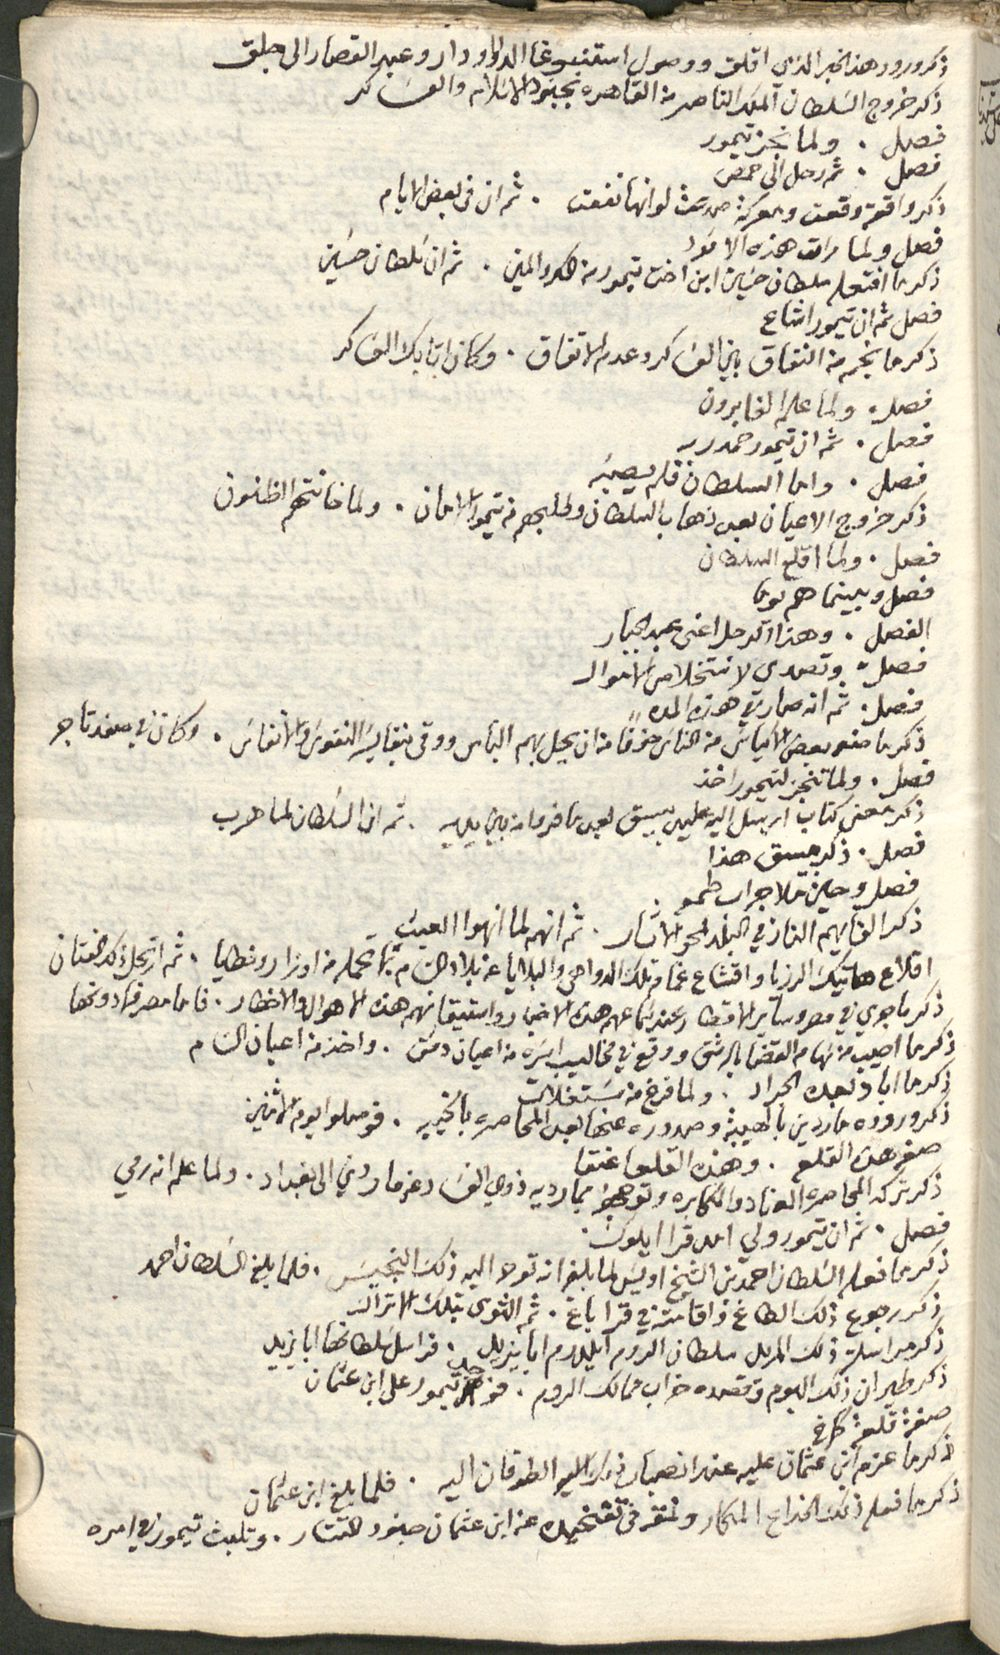 ذكر ورود هذا الخبر الذي اقلق ووصول استنبوغا الدوادار وعبد القصار الى جلق
ذكر خروج السلطان الملك الناصر من القاهره بجنود الاسلام والعساكر
فصل . ولما نجز تيمور
فصل . ثم رحل الى حمص
ذكر واقعة وقعت ومعركة صدعت لو انها نفعت . ثم ان في بعض الايام
فصل ولما رات هذه الامور
ذكر ما افتعله سلطان حسين ابن اخت تيمور من المكر والمين . ثم ان سلطان حسين
فصل ثم ان تيمور اشاع
ذكر ما نجم من النفاق بين العساكر وعدم الاتفاق . وكان اتابك العساكر
فصل . ولما علم الغابرون
فصل . ثم ان تيمور حمد ربه
فصل . واما السلطان فلم يصبه
ذكر خروج الاعيان بعد ذهاب السلطان وطلبهم من تيمور الامان . ولما خانتهم الظنون
فصل . ولما اقلع السلطان
فصل وبينما هم يوما
الفصل . وهذا الرجل اعني عبد الجبار
فصل . وتصدى لاستخلاص الاموال
فصل . ثم انه صار في هذه المده
ذكر ما صنعه بعض الاكياس من الناس خوفا من ان يحل بهم الباس ووقى بنفايس النفوس والانفاس . وكان في صفد تاجر
فصل . ولما تنجز لتيمور اخذ
ذكر معنى كتاب ارسل اليه على يد بيسق بعد ما فروا من بين يديه . ثم ان السلطان لما هرب
فصل . ذكر بيسق هذا
فصل وحين ملا جراب طمعه
ذكر القايهم النار في البلد لمحو الاثار . ثم انهم لما انهوا العيث
اقلاع هاتيك الرزايا واقشاع غمام تلك الدواهي والبلايا عن بلاد الشام بما تحمله من اوزار وخطايا . ثم ارتحل ذكد الفتان
ذكر ما جرى في مصر وساير الاقطار عند سماعهم هذه الاخبار واستيقانهم هذه الاهوال والاخطار . فاما مصر فما دونها
ذكر ما اصيب من سهام القضا بالرشق ووقع في مخاليب اسره من اعيان دمشق . واخذ من اعيان الشام
ذكر ما اباد بعده الجراد . ولما فرغ من مستغلات
ذكر وروده ماردين بالهيبة وصدوره عنها بعد المحاصره بالخيبه . فوصلوا يوم الاثنين
صفة هذه القلعه . وهذه القلعه عنقا
ذكر تركه المحاصره العناد والمكابره وتوجهه بمارديه ذوي الفساد عن ماردين الى بغداد . ولما علم انه رمي
فصل . ثم ان تيمور ولي امد قرا ايلوك
ذكر ما فعله السلطان احمد بن الشيخ اويس لما بلغه انه توجه اليه ذلك النجيس . فلما بلغ السلطان احمد
ذكر رجوع ذلك الطاغ واقامته في قراباغ . ثم الثوى بتلك الاتراك
ذكر مراسلة ذلك المريد سلطان الروم ايلدرم ابا يزيد . فراسل سلطانها ابا يزيد
ذكر طيران ذلك البوم وقصده خراب ممالك الروم . فوجد تيمور على ابن عثمان
صفة قلعة كماخ
ذكر ما عزم ابن عثمان عليه عند انصباب ذلك السيل الطوفان اليه . فلما بلغ ابن عثمان
ذكر ما فعله ذلك الخداع المكار ونمقه في تفخيذه عن ابن عثمان جنود التتار . وتلبث تيمور في امره